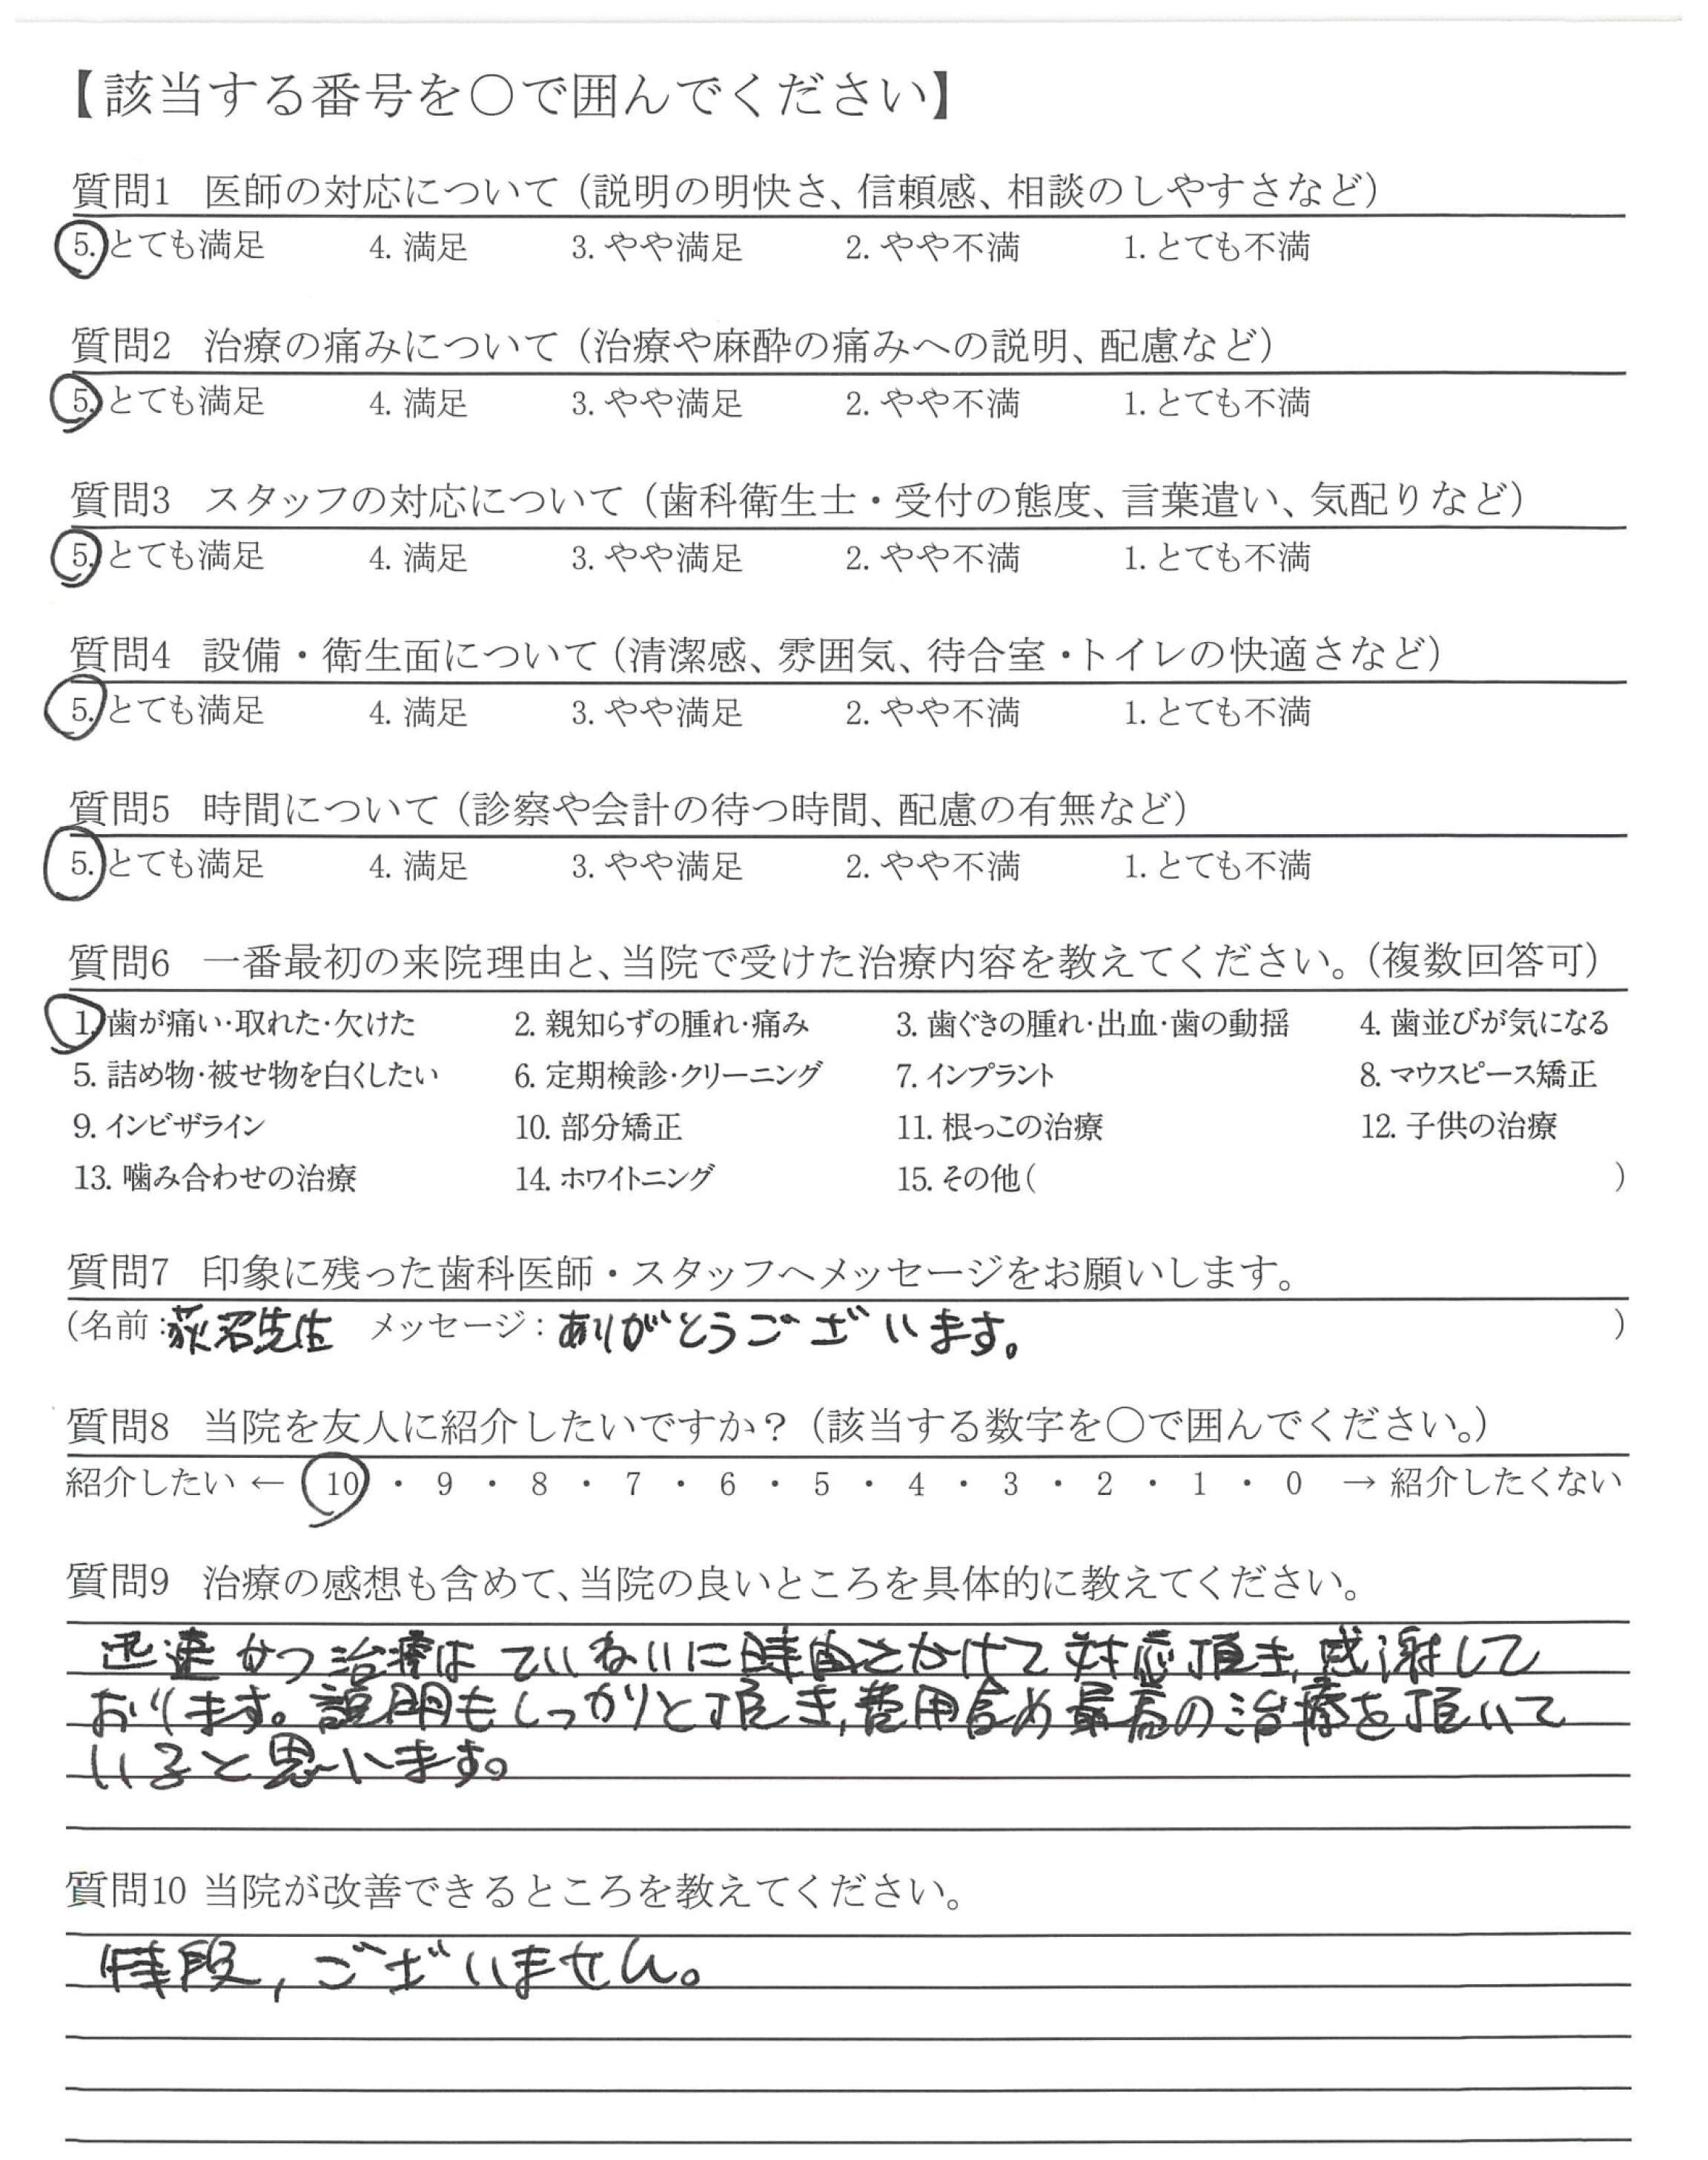 【該当する番号を〇で囲んでください】
質問1 医師の対応について（説明の明快さ、信頼感、相談のしやすさなど）
5. とても満足 4. 満足 3. やや満足 2. やや不満 1. とても不満
質問2 治療の痛みについて（治療や麻酔の痛みへの説明、配慮など）
5. とても満足 4. 満足 3. やや満足 2. やや不満 1. とても不満
質問3 スタッフの対応について（歯科衛生士・受付の態度、言葉遣い、気配りなど）
5. とても満足 4. 満足 3. やや満足 2. やや不満 1. とても不満
質問4 設備・衛生面について（清潔感、雰囲気、待合室・トイレの快適さなど）
5. とても満足 4. 満足 3. やや満足 2. やや不満 1. とても不満
質問5 時間について（診察や会計の待つ時間、配慮の有無など）
5. とても満足 4. 満足 3. やや満足 2. やや不満 1. とても不満
質問6 一番最初の来院理由と、当院で受けた治療内容を教えてください。（複数回答可）
1. 歯が痛い・取れた・欠けた 2. 親知らずの腫れ・痛み 3. 歯ぐきの腫れ・出血・歯の動揺 4. 歯並びが気になる
5. 詰め物・被せ物を白くしたい 6. 定期検診・クリーニング 7. インプラント 8. マウスピース矯正
9. インビザライン 10. 部分矯正 11. 根っこの治療 12. 子供の治療
13. 噛み合わせの治療 14. ホワイトニング 15. その他（ ）
質問7 印象に残った歯科医師・スタッフへメッセージをお願いします。
（名前：荻沼先生 メッセージ：ありがとうございます。 ）
質問8 当院を友人に紹介したいですか？（該当する数字を〇で囲んでください。）
紹介したい ← 10 ・ 9 ・ 8 ・ 7 ・ 6 ・ 5 ・ 4 ・ 3 ・ 2 ・ 1 ・ 0 → 紹介したくない
質問9 治療の感想も含めて、当院の良いところを具体的に教えてください。
迅速かつ治療はていねいに時間をかけて対応頂き、感謝して
おります。説明もしっかりと頂き、費用含め最高の治療を頂いて
いると思います。
質問10 当院が改善できるところを教えてください。
特段、ございません。